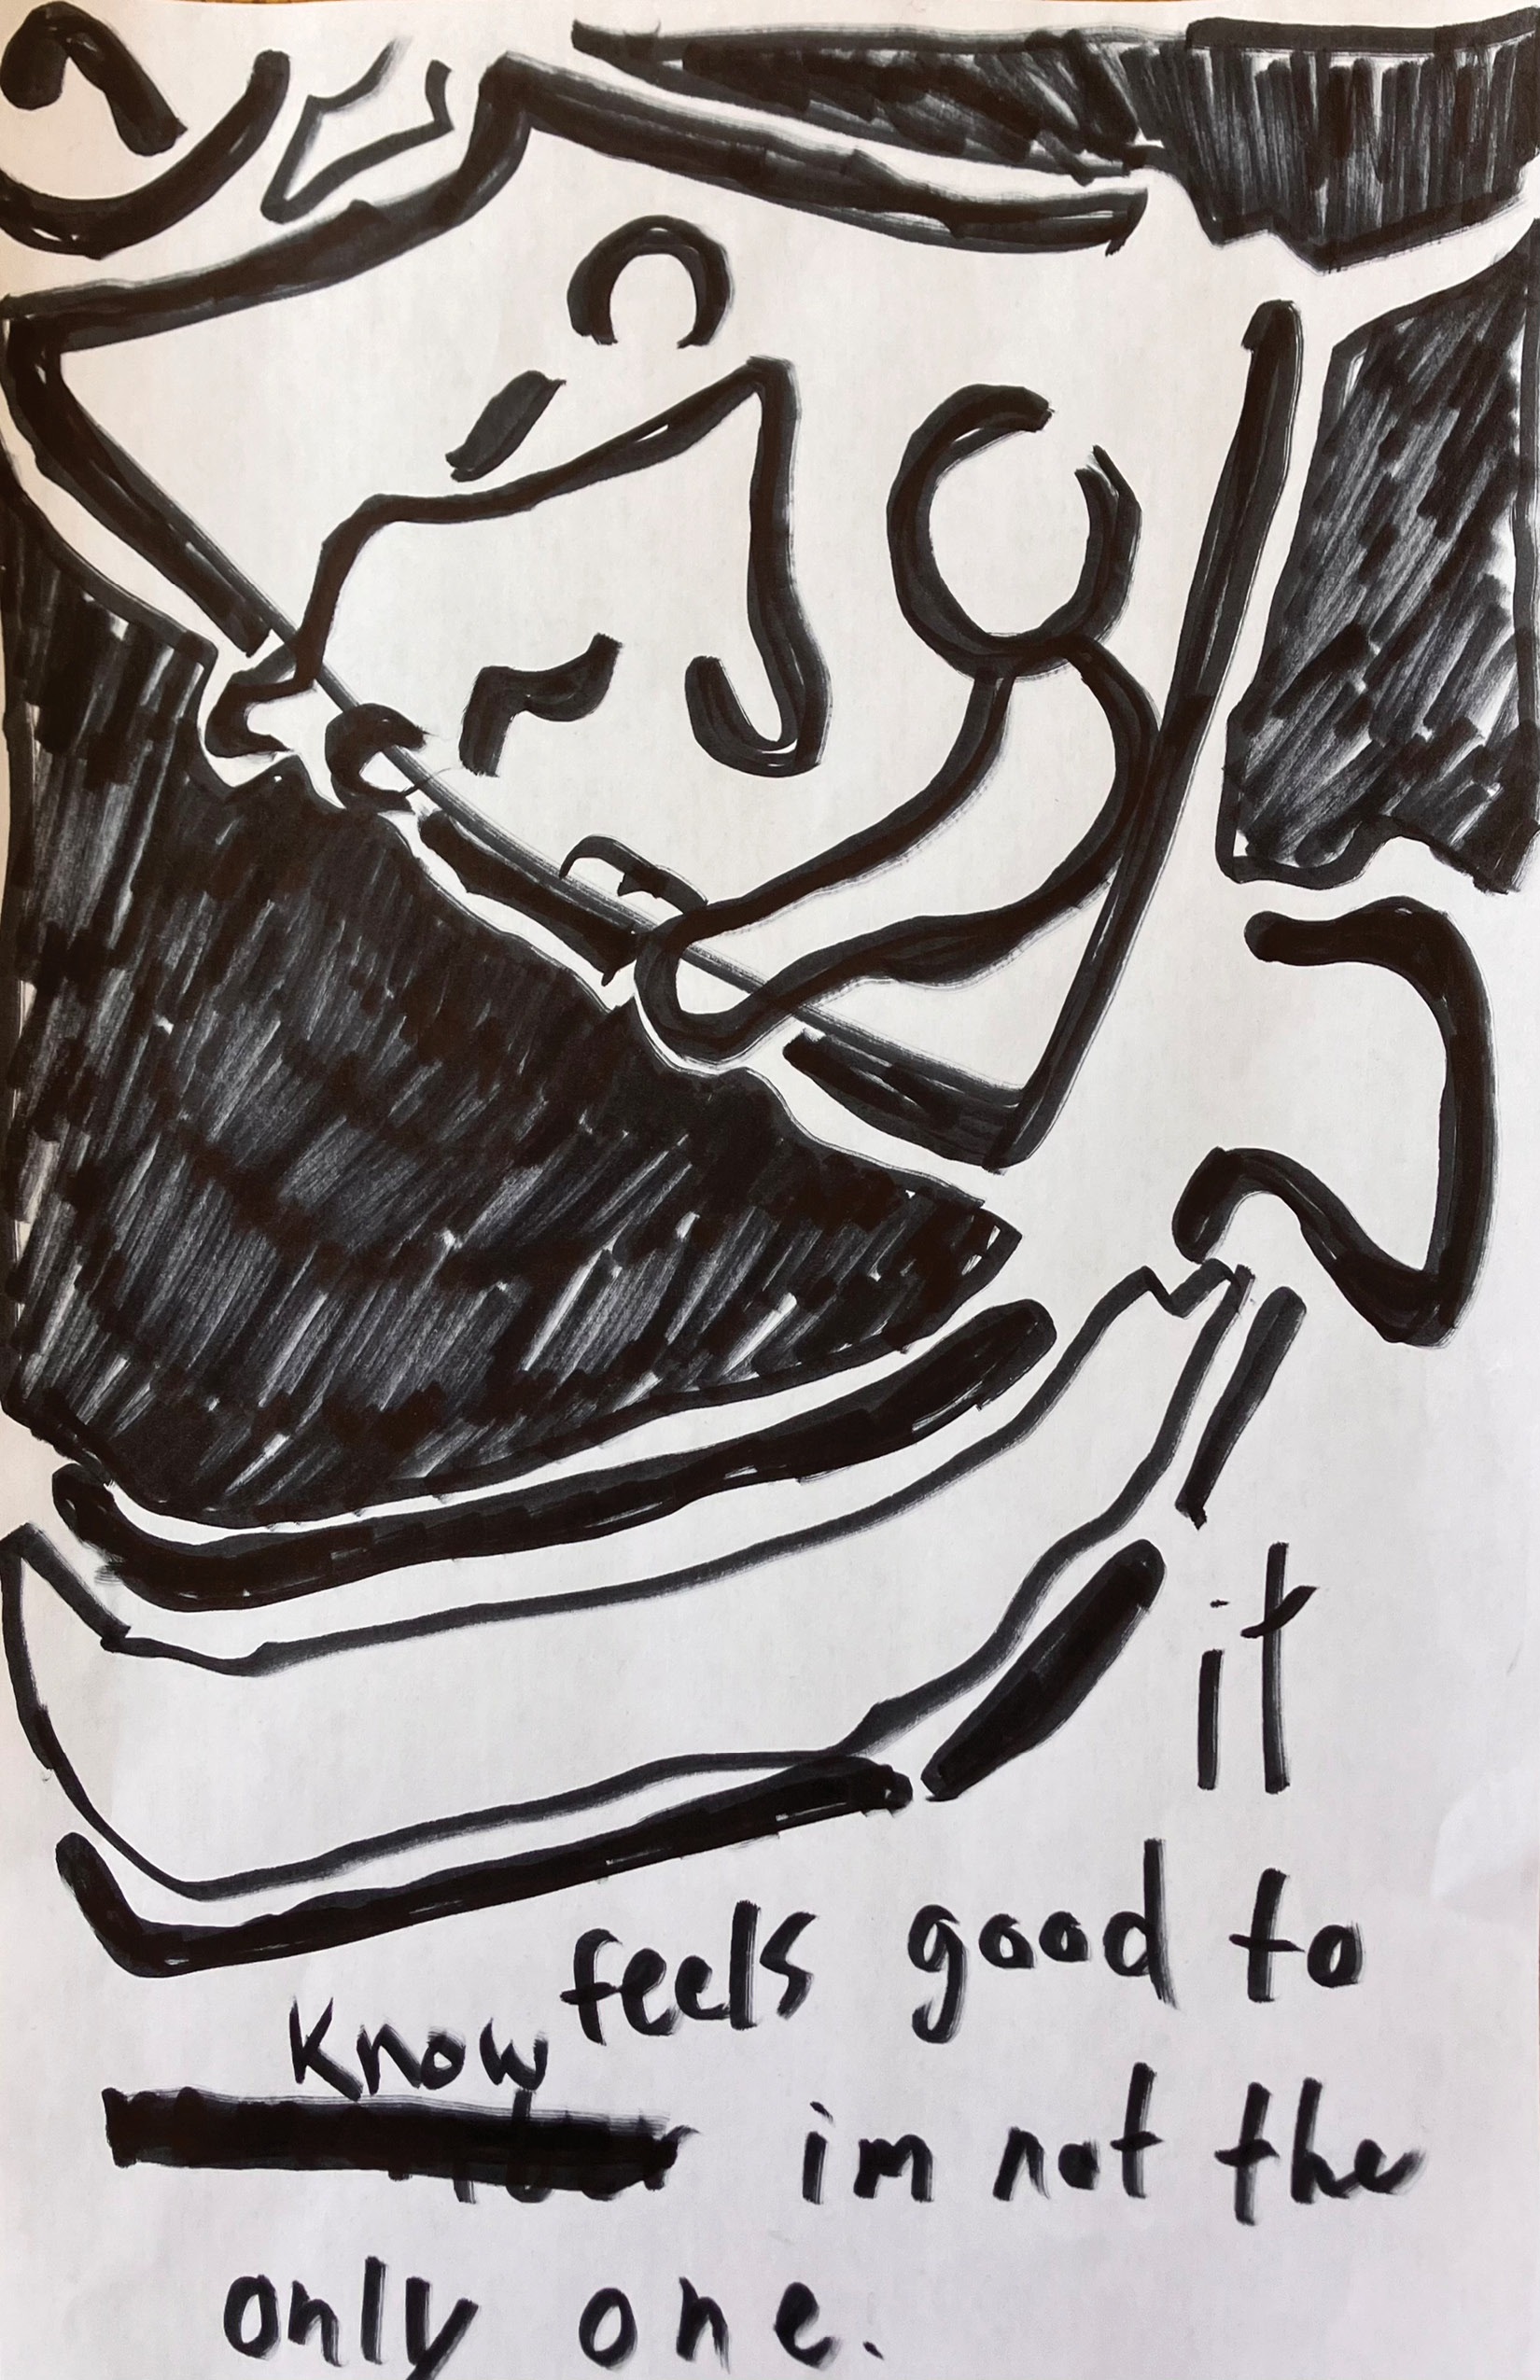 it
feels good to
know im not the
only one.